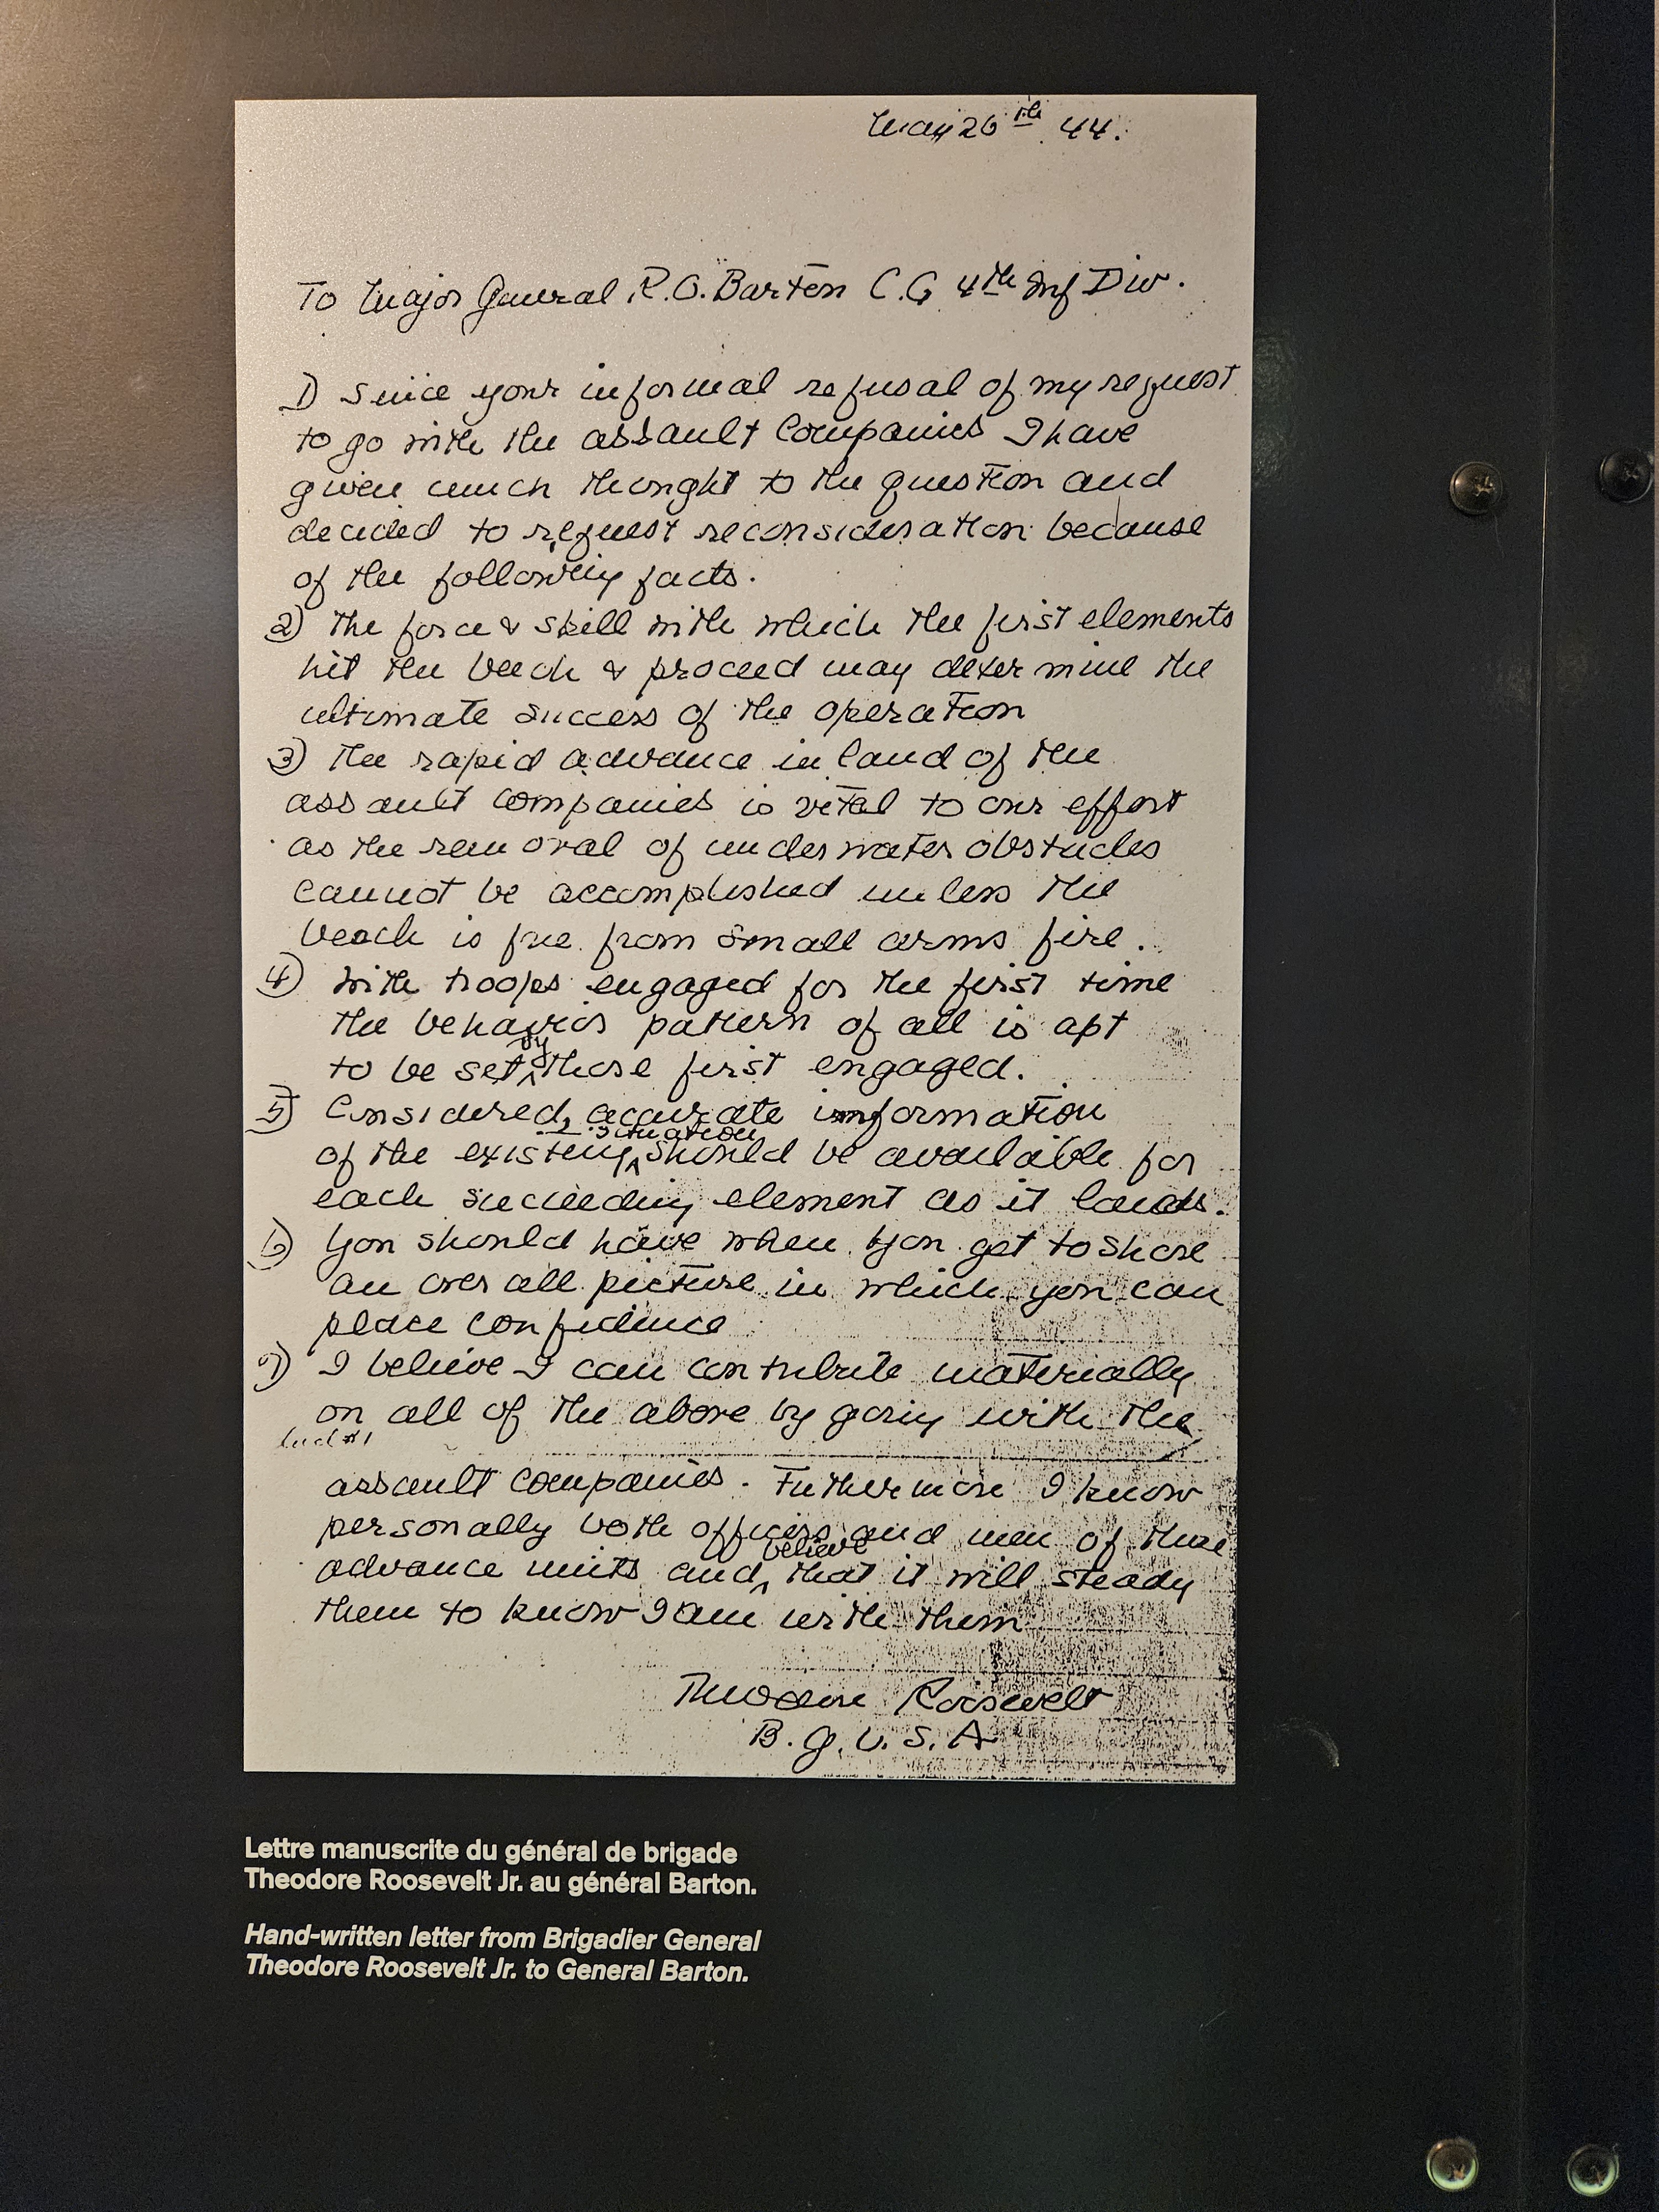 May 26th 44.
To Major General R.O. Barton C.G 4th Inf Div.
1) Since your informal refusal of my request
to go with the assault Companies I have
given much thought to the question and
decided to request reconsideration because
of the following facts.
2) The force & skill with which the first elements
hit the beach & proceed may determine the
ultimate success of the operation
3) The rapid advance inland of the
assault companies is vital to our effort
as the removal of underwater obstacles
cannot be accomplished unless the
beach is free from small arms fire.
4) With troops engaged for the first time
the behavior pattern of all is apt
to be set by those first engaged.
5) Considered, accurate information
of the existing situation should be available for
each succeeding element as it lands.
6) You should have when you get to shore
an over all picture in which you can
place confidence
7) I believe I can contribute materially
on all of the above by going with the
assault companies. Futhermore I know
personally both officers and men of these
advance units and believe that it will steady
them to know I am with them
Theodore Roosevelt
B.G. U.S.A
Lettre manuscrite du général de brigade
Theodore Roosevelt Jr. au général Barton.
Hand-written letter from Brigadier General
Theodore Roosevelt Jr. to General Barton.